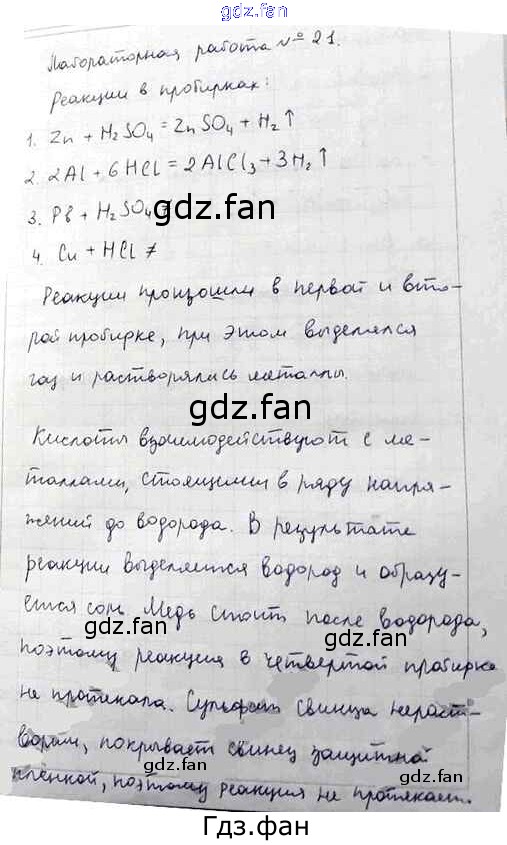 gdz.fan
Лабораторная работа № 21.
Реакции в пробирках:
1. Zn + H₂SO₄ = ZnSO₄ + H₂↑
2. 2Al + 6HCl = 2AlCl₃ + 3H₂↑
3. Pb + H₂SO₄ ≠
gdz.fan
4. Cu + HCl ≠
Реакции произошли в первой и вто-
рой пробирке, при этом выделялся
газ и растворялись металлы.
gdz.fan
Кислоты взаимодействуют с ме-
таллами, стоящими в ряду напря-
жений до водорода. В результате
реакции выделяется водород и образу-
ется соль. Медь стоит после водорода,
gdz.fan gdz.fan
поэтому реакция в четвертой пробирке
не протекала. Сульфат свинца нераст-
ворим, покрывает свинец защитной
gdz.fan gdz.fan
пленкой, поэтому реакция не протекает.
Гдз.фан